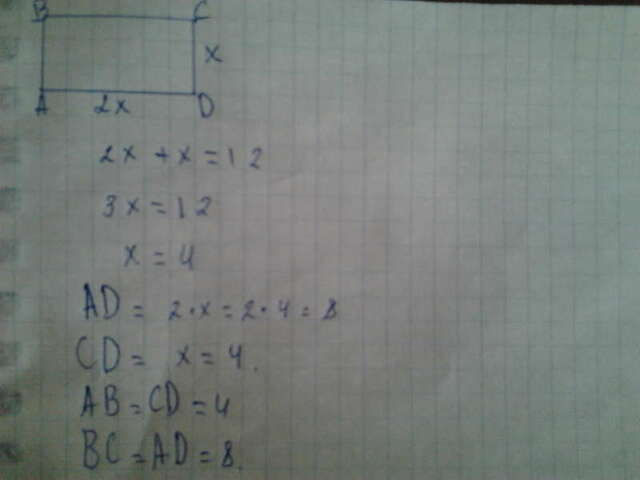 B C
x
A 2x D
2x + x = 12
3x = 12
x = 4
AD = 2·x = 2·4 = 8
CD = x = 4.
AB = CD = 4
BC = AD = 8.